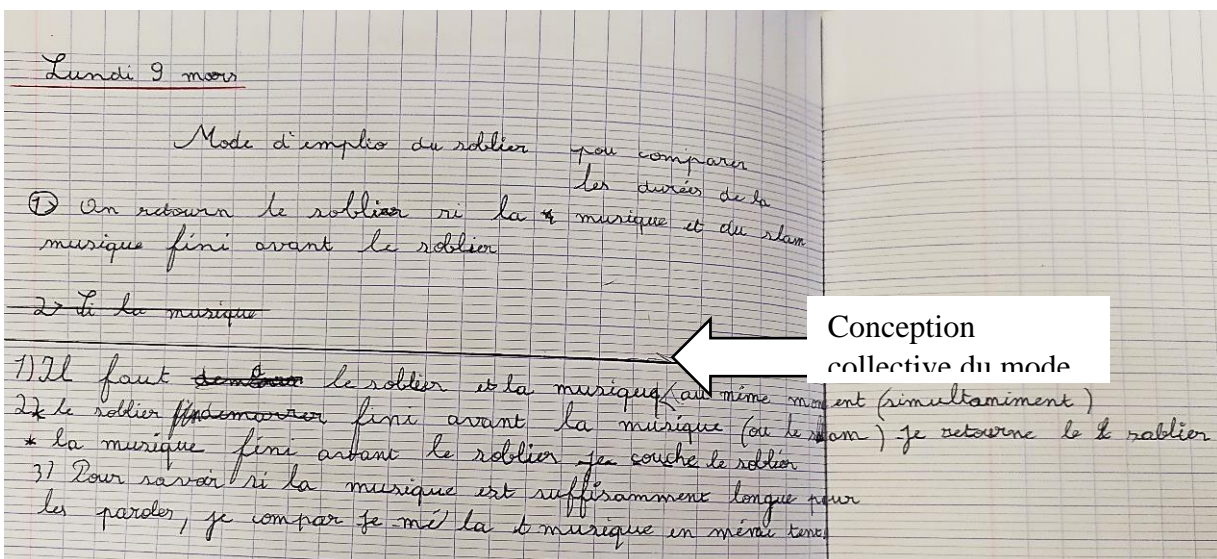 Lundi 9 mars
Mode d'emplio du sablier pou comparer
les durées de la
① On retourn le sablier si la musique et du slam
musique fini avant le sablier
2> Si la musique
Conception
collective du mode
1) Il faut le sablier et la musique (au même moment (simultaniment)
2) * le sablier fini avant la musique (ou le slam) je retourne le sablier
* la musique fini avant le sablier je couche le sablier
3) Pour savoir si la musique est suffisamment longue pour
les paroles, je compar je mé la musique en même tenc